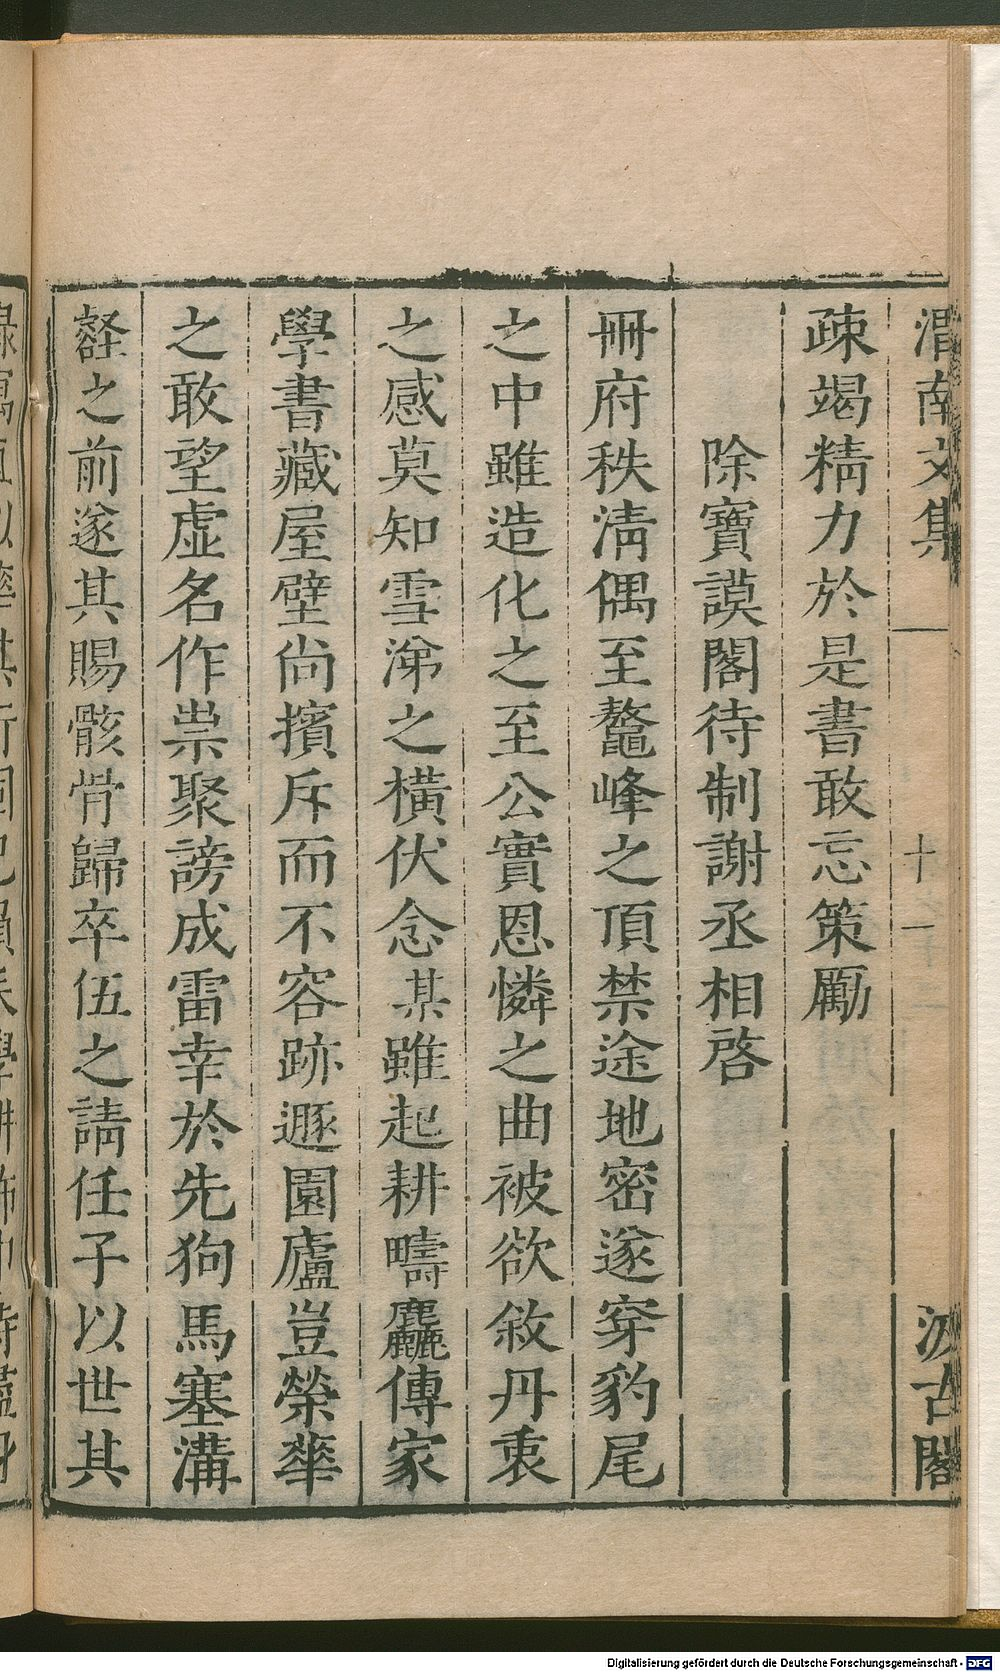 渭南文集
汲古閣
疎竭精力於是書敢忘策勵
除寶謨閣待制謝丞相啓
冊府秩清偶至鼇峰之頂禁途地密遂穿豹尾
之中雖造化之至公實恩憐之曲被欲敘丹衷
之感莫知雪涕之橫伏念某雖起耕疇麤傳家
學書藏屋壁尚擯斥而不容跡遯園廬豈榮華
之敢望虛名作祟聚謗成雷幸於先狗馬塞溝
壑之前遂其賜骸骨歸卒伍之請任子以世其
Digitalisierung gefördert durch die Deutsche Forschungsgemeinschaft - DFG